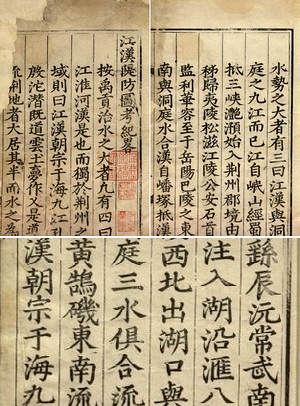 水勢之大者有三曰江漢與洞
庭之九江而已江自岷山經蜀
抵三峽灔澦始入荆州郡境由
秭歸夷陵松滋江陵公安石首
監利華容至于岳陽巴陵之東
南與洞庭水合漢自嶓塚抵漢
江漢隄防圖考紀畧
按禹貢治水之大者九有四曰
江淮河漢是也而獨於荆州之
域則曰江漢朝宗于海九江孔
殷沱潛既道雲土夢作又是道
地者大居其半而水之為
縣辰沅常武南
注入湖沿滙八
西北出湖口與
庭三水俱合流
黃鵠磯東南流
漢朝宗于海九